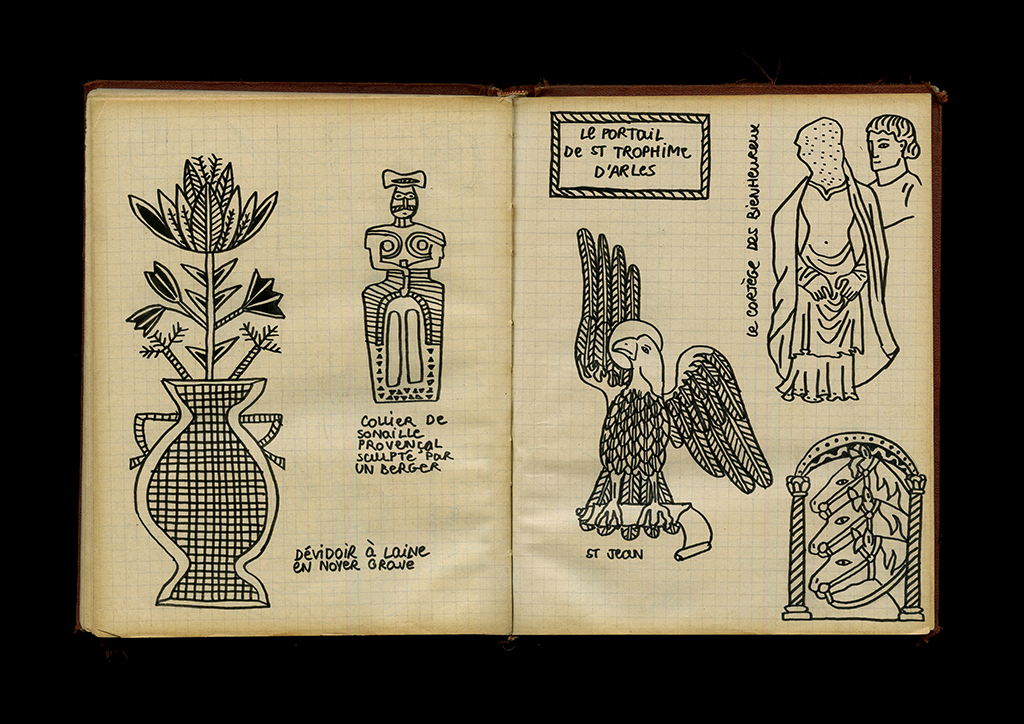 COLLIER DE
SONAILLE
PROVENÇAL
SCULPTÉ PAR
UN BERGER
DÉVIDOIR À LAINE
EN NOYER GRAVE
LE PORTAIL
DE ST TROPHIME
D'ARLES
LE CORTÈGE DES BIENHEUREUX
ST JEAN